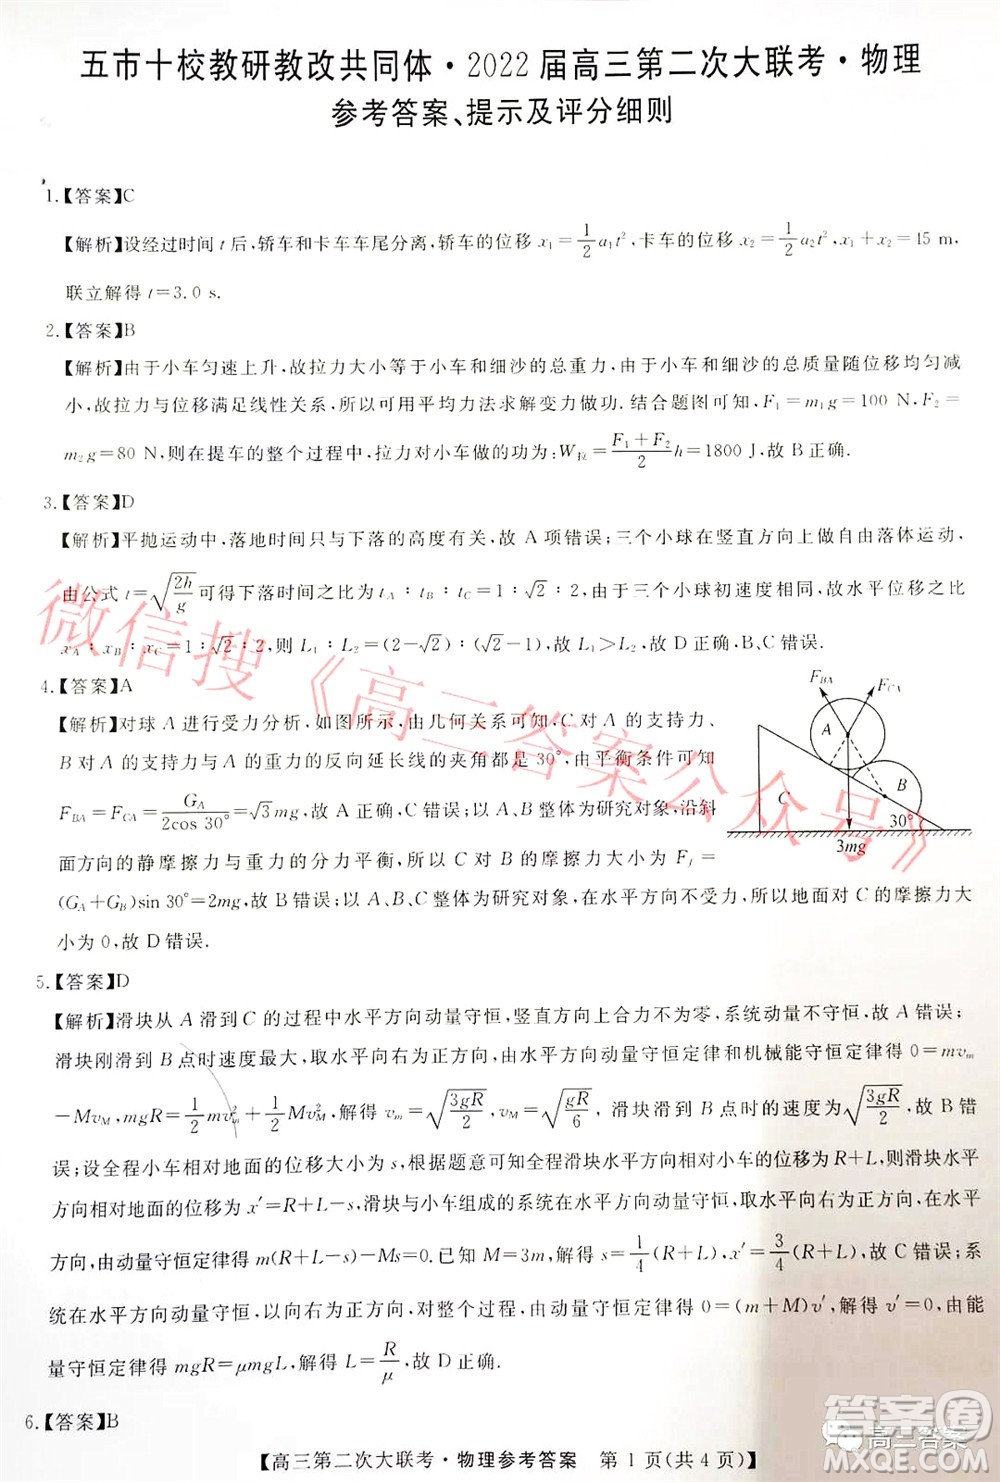 五市十校教研教改共同体·2022届高三第二次大联考·物理
参考答案、提示及评分细则
1.【答案】C
【解析】设经过时间 t 后,轿车和卡车车尾分离,轿车的位移 x₁=1/2 a₁t²,卡车的位移 x₂=1/2 a₂t²,x₁+x₂=15 m,
联立解得 t=3.0 s.
2.【答案】B
【解析】由于小车匀速上升,故拉力大小等于小车和细沙的总重力,而小车和细沙的总质量随位移均匀减
小,故拉力与位移满足线性关系,所以可用平均力法求解变力做功.结合题图可知,F₁=m₁g=100 N,F₂
=m₂g=80 N,则在提车的整个过程中,拉力对小车做的功为:W拉=(F₁+F₂)/2 h=1800 J,故 B 正确.
3.【答案】D
【解析】平抛运动中,落地时间只与下落的高度有关,故 A 项错误;三个小球在竖直方向上做自由落体运动,
由公式 t=√(2h/g)可得下落时间之比为 tA∶tB∶tC=1∶√2∶2;三个小球初速度相同,故水平位移之比
xA∶xB∶xC=1∶√2∶2,则 L₁∶L₂=(2-√2)∶(√2-1)=√2∶1,故 L₁>L₂,故 D 正确,B、C 错误.
4.【答案】A
【解析】对球 A 进行受力分析,如图所示,由几何关系可知,C 对 A 的支持力、
B 对 A 的支持力与 A 的重力的反向延长线的夹角都是 30°,由平衡条件可知
FBA=FCA=GA/(2cos 30°)=√3mg,故 A 正确,C 错误;以 A、B 整体为研究对象,沿斜
面方向的静摩擦力与重力的分力平衡,所以 C 对 B 的摩擦力大小为 Ff=
(GA+GB)sin 30°=2mg,故 B 错误;以 A、B、C 整体为研究对象,在水平方向不受力,所以地面对 C 的摩擦力大
小为 0,故 D 错误.
FBA
FCA
A
B
C
30°
3mg
5.【答案】D
【解析】滑块从 A 滑到 C 的过程中水平方向动量守恒,竖直方向上合力不为零,系统动量不守恒,故 A 错误;
滑块刚滑到 B 点时速度最大,取水平方向右为正方向,由水平方向动量守恒定律和机械能守恒定律得 0=mvm
-MvM,mgR=1/2 mvm²+1/2 MvM²,解得 vm=√(3gR/2),vM=√(gR/6),滑块滑到 B 点时的速度为√(3gR/2),故 B 错
误;设全程小车相对地面的位移大小为 s,根据题意可知全程滑块水平方向相对小车的位移为 R+L,则滑块水平方
向相对地面的位移为 x′=R+L-s,滑块与小车组成的系统在水平方向动量守恒,取水平方向右为正方向,在水平
方向,由动量守恒定律得 m(R+L-s)-Ms=0.已知 M=3m,解得 s=1/4(R+L),x′=3/4(R+L),故 C 错误;系
统在水平方向动量守恒,以向右为正方向,对整个过程,由动量守恒定律得 0=(m+M)v′,解得 v′=0,由能
量守恒定律得 mgR=μmgL,解得 L=R/μ,故 D 正确.
6.【答案】B
【高三第二次大联考·物理参考答案 第 1 页(共 4 页)】
微信搜《高三答案公众号》
答案圈
高三答案
MXQE.COM